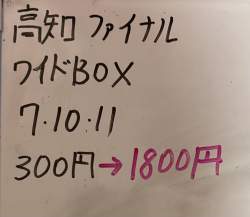 高知 ファイナル
ワイドBOX
7·10·11
300円→1800円